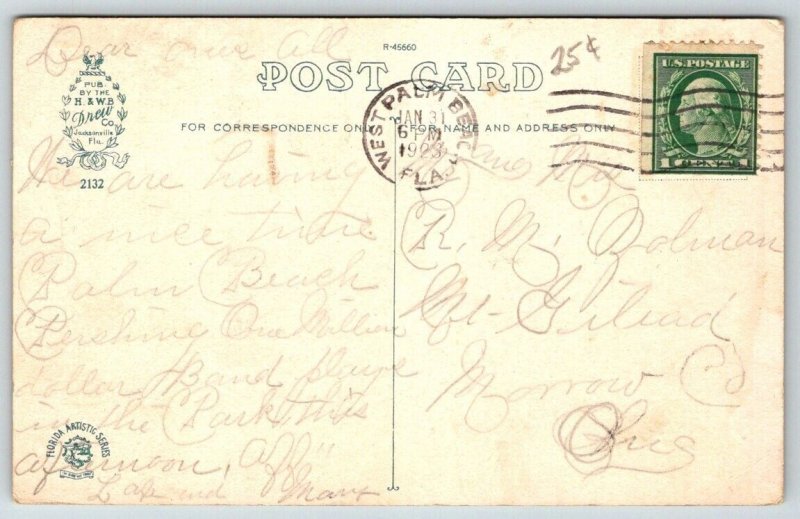 Dear ones all
R-45660
25¢
POST CARD
U.S. POSTAGE
1 CENT 1
PUB.
BY THE
H. & W.B.
Drew
Co.
Jacksonville
Fla.
2132
WEST PALM BEACH
JAN 31
6 PM
1923
FLA.
FOR CORRESPONDENCE ONLY
FOR NAME AND ADDRESS ONLY
We are having
a nice time
Palm Beach
Pershing One Million
dollar Band plays
in the Park this
afternoon,
and Mary
R. M. Dolman
Mt. Gilead
Morrow Co
Ohio
FLORIDA ARTISTIC SERIES